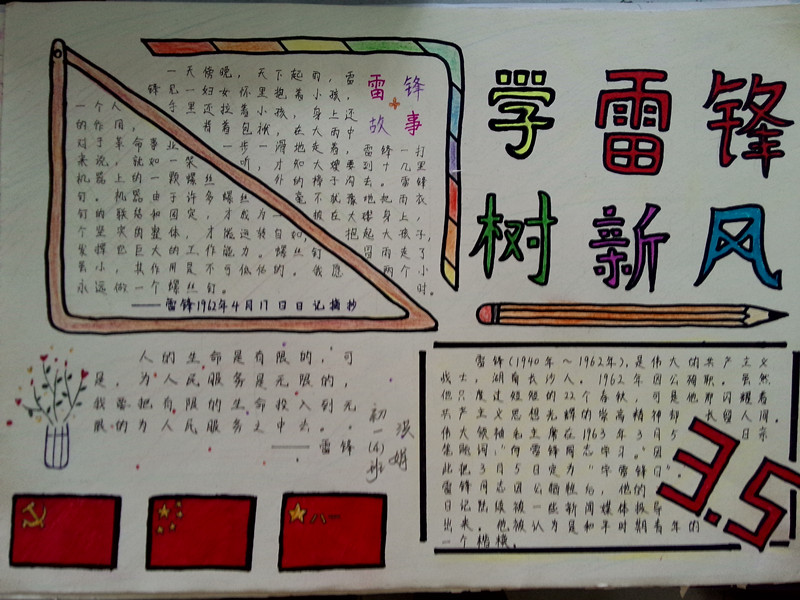 学雷锋
树新风
雷锋
故事
一天傍晚，天下起雨，雷
锋见一妇女怀里抱着小孩，
手里还拉着小孩，身上还
背着包袱，在大雨中
一步一滑地走着，雷锋一打
听，才知大嫂要到十几里
外的樟子沟去。雷锋
毫不犹豫地把雨衣
披在大嫂身上，
抱起大孩子，
冒雨走了
两个小
时。
一个人
的作用，
对于革命事业
来说，就如一架
机器上的一颗螺丝
钉。机器由于许多螺丝
钉的联结和固定，才成为一
个坚实的整体，才能运转自如，
发挥它巨大的工作能力。螺丝钉
虽小，其作用是不可低估的。我愿
永远做一个螺丝钉。
——雷锋1962年4月17日日记摘抄
人的生命是有限的，可
是，为人民服务是无限的，
我要把有限的生命投入到无
限的为人民服务之中去。
——雷锋
初一(4)班
八一
雷锋(1940年～1962年)，是伟大的共产主义
战士，湖南长沙人。1962年因公殉职。虽然
他只度过短短的22个春秋，可是他那闪耀着
共产主义思想光辉的崇高精神却长留人间。
伟大领袖毛主席在1963年3月5日亲
笔题词"向雷锋同志学习"。因
此把3月5日定为"学雷锋日"。
雷锋同志因公牺牲后，他的
日记陆续被一些新闻媒体报导
出来。他被认为是和平时期青年的
一个楷模。
3.5